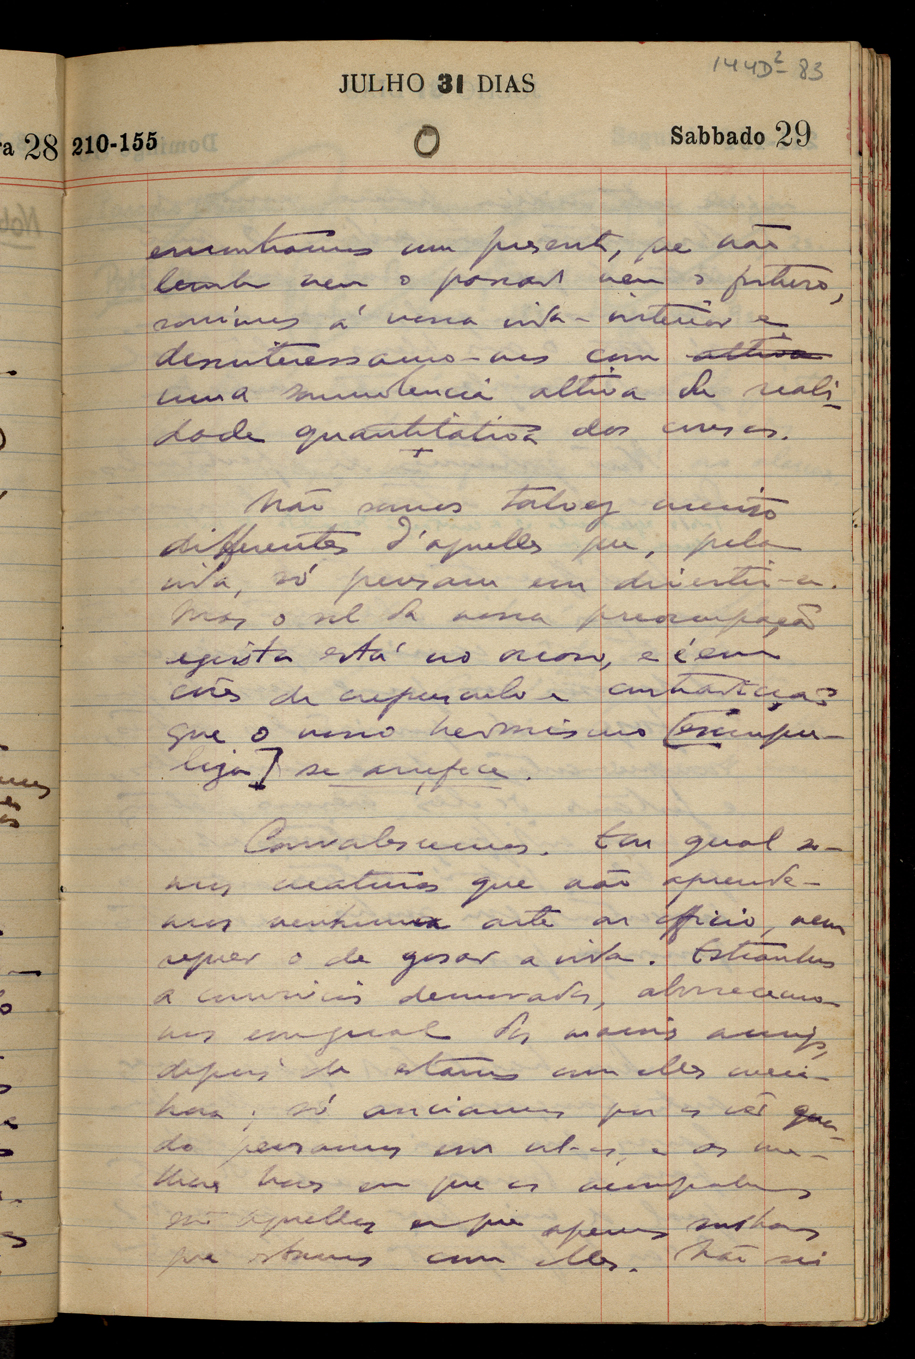 144D²-83
JULHO 31 DIAS
ra 28 210-155
Sabbado 29
encontramos um presente, que não
lembre nem o passado nem o futuro,
sorrimos á nossa vida-interior e
desinteressamo-nos com altiva
uma somnolencia altiva da reali-
dade quantitativa das cousas.
Não somos talvez muito
differentes d'aquelles que, pela
vida, só pensam em divertir-se.
Mas o sol da nossa preocupação
egoista está no occaso, e é em
côres de crepusculo e contradicção
que o nosso hedonismo
se arrefece.
Convalescemos. Em geral so-
mos creaturas que não aprende-
mos nenhuma arte ou officio, nem
sequer o de gosar a vida. Extranhos
a convivios demorados, aborrecemo-
nos em geral dos maiores amigos,
depois de estarmos com elles meia-
hora; só anciamos por os vêr quan-
do pensamos em vel-os, e as me-
lhores horas em que os acompanhamos
são aquellas em que apenas sonhamos
que estamos com elles. Não sei